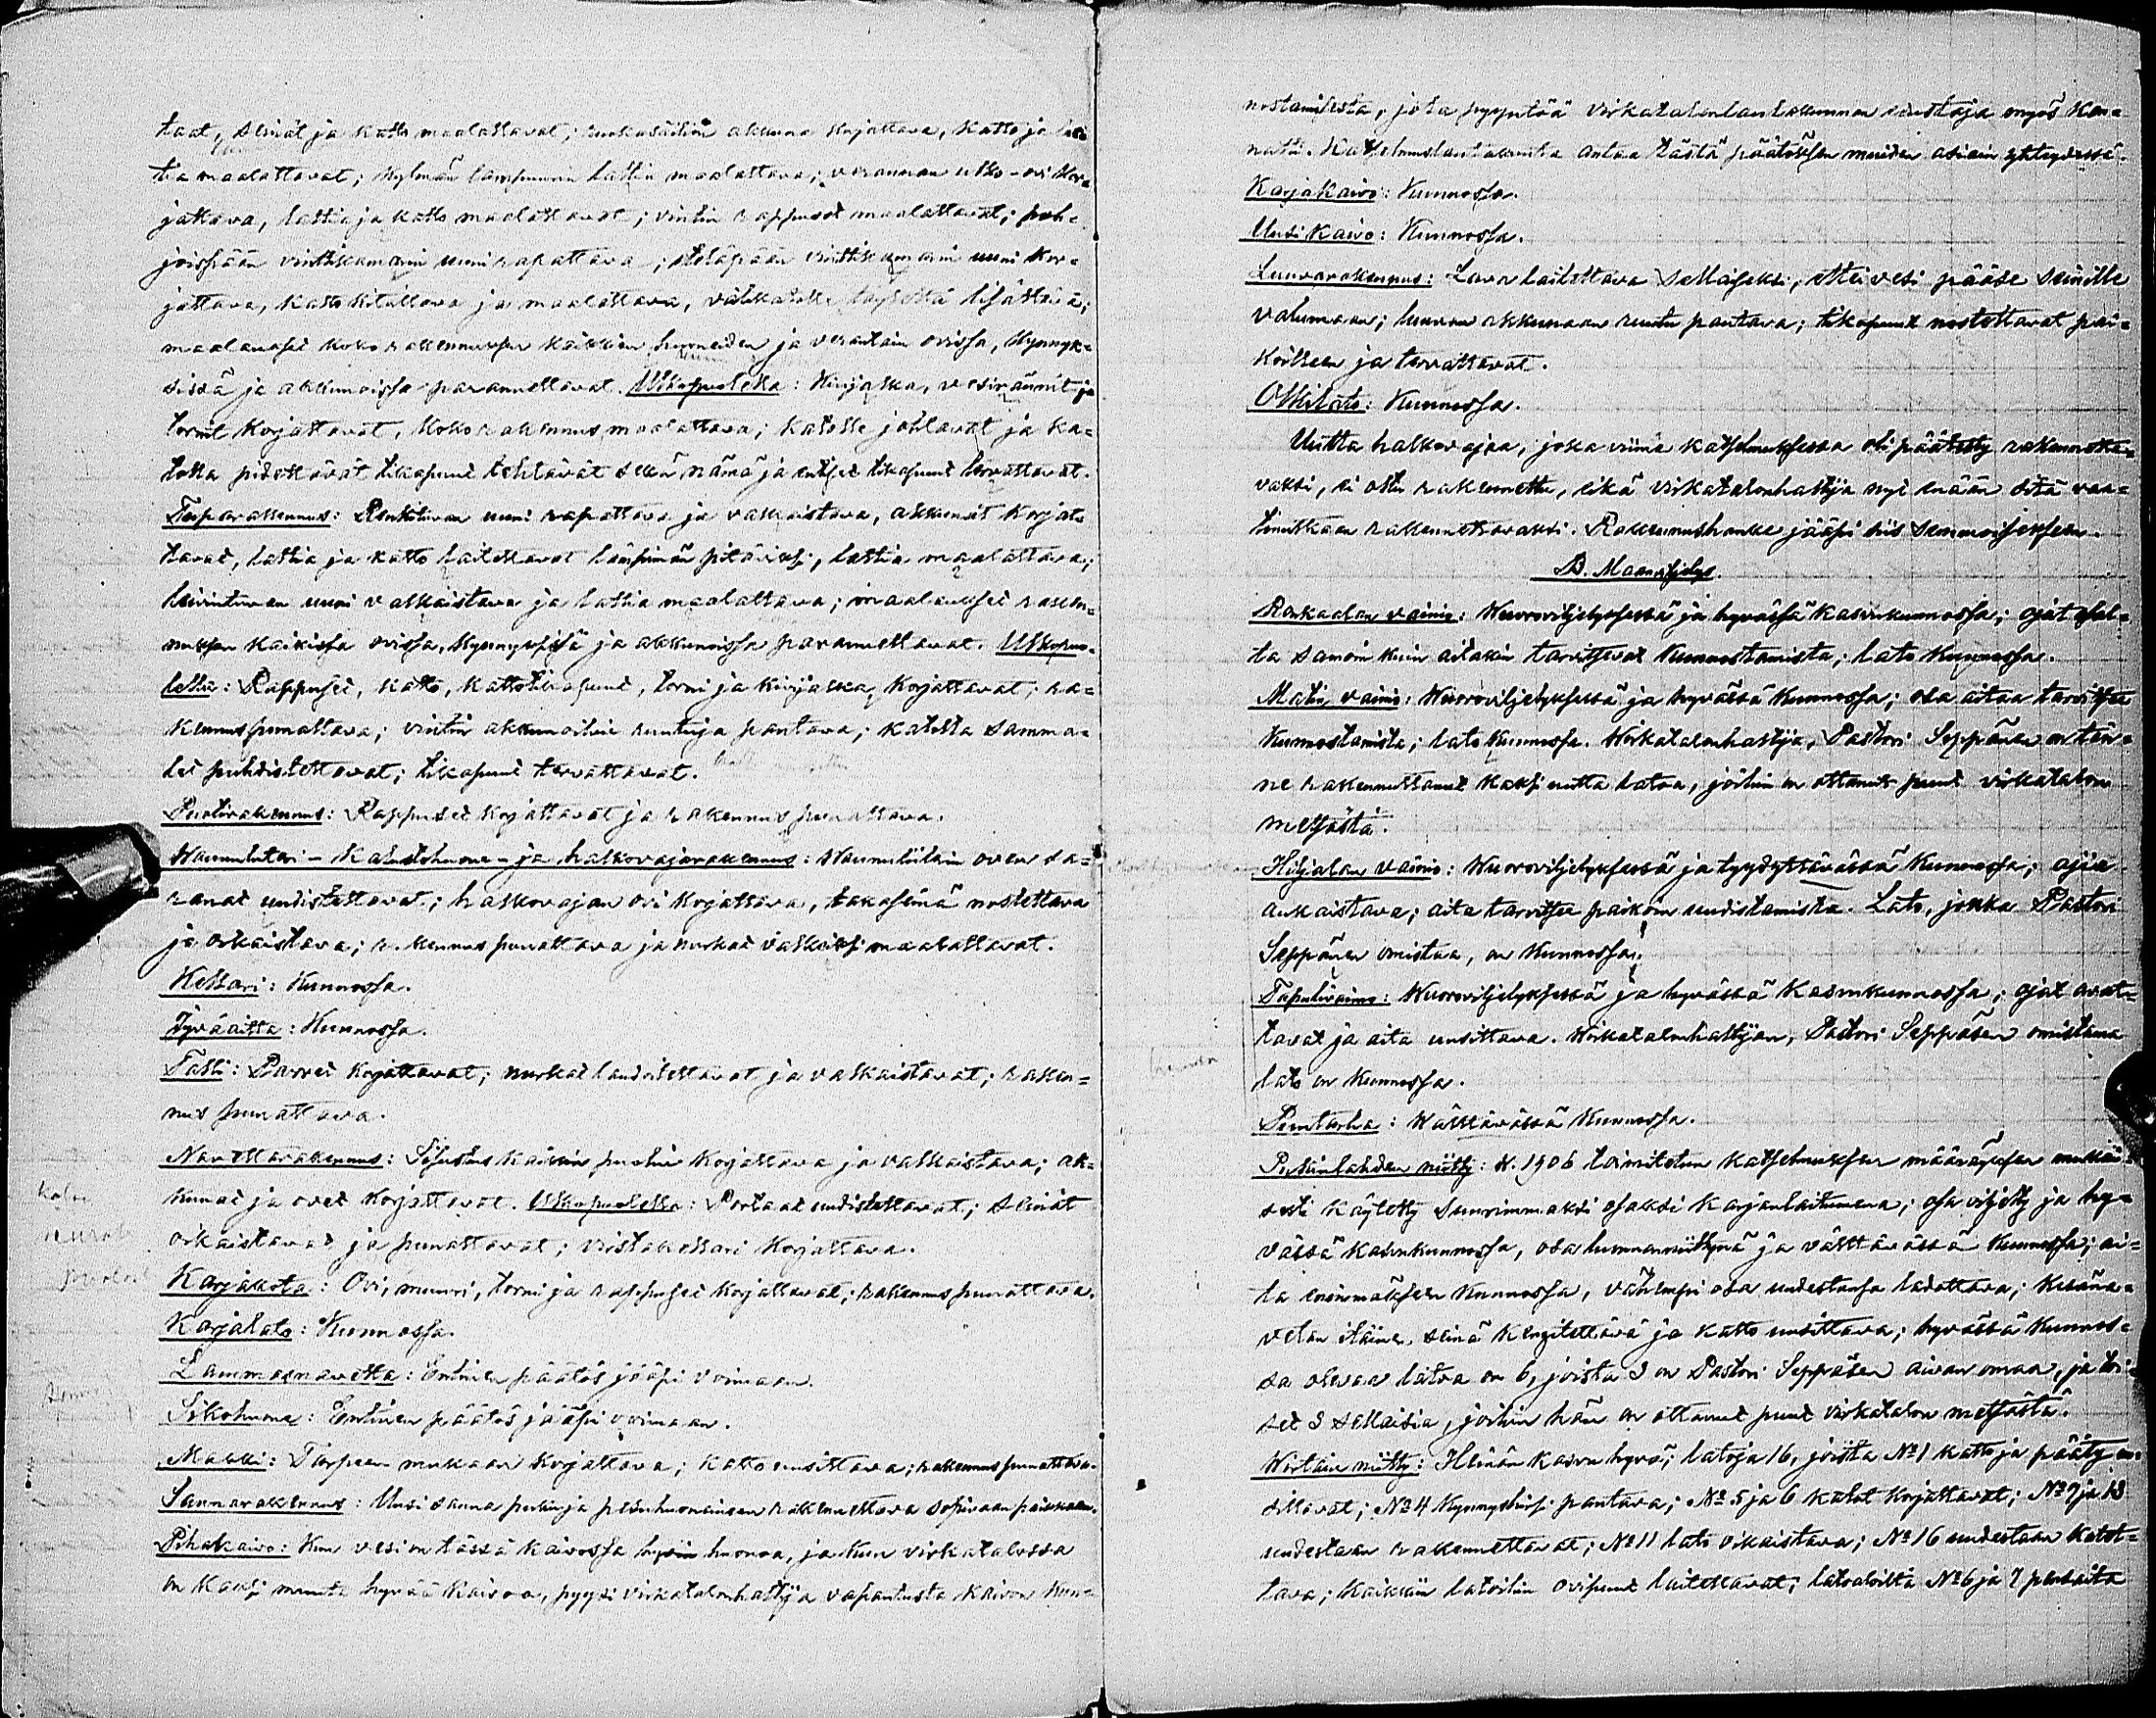 taat, seinät ja katto maalattavat; ruokasäiliön akkuna korjattava, katto ja lat-
tia maalattavat; kylmän lattia maalattava; verannan ulko-ovi kor-
jattava, lattia ja katto maalattavat; vintin rappuset maalattavat; poh-
joispään vinttikamarin uuni rapattava; eteläpään vinttikamarin uuni kor-
jattava, katto kitattava ja maalattava, välikatolle täytettä lisättävä;
maalaukset koko rakennuksen kaikkien huoneiden ja verantain ovissa, kynnyk-
sissä ja akkunoissa parannettavat. Ulkopuolelta: Kivijalka, vesirännit ja
tornit korjattavat, koko rakennus maalattava; katolle johtavat ja ka-
tolla pidettävät tikapuut tehtävät sekä nämä ja entiset tikapuut tervattavat.
Tuparakennus: Renkituvan uuni rapattava ja valkaistava, akkunat korjat-
tavat, lattia ja katto laitettavat lämpimän pitäviksi, lattia maalattava;
leivintuvan uuni valkaistava ja lattia maalattava; maalaukset raken-
nuksen kaikissa ovissa, kynnyksissä ja akkunoissa parannettavat. Ulkopuo-
lelta: Rappuset, katto, kattotikapuut, torni ja kivijalka korjattavat; ra-
kennus punattava; vintin akkunoihin ruutuja pantava; katolta samma-
let puhdistettavat; tikapuut tervattavat.
Puotirakennus: Rappuset korjattavat ja rakennus punattava.
Waunuliiteri- kalustohuone- ja halkovajarakennus: Waunuliiterin oven sa-
ranat uudistettavat; halkovajan ovi korjattava, takaseinä nostettava
ja oikaistava; rakennus punattava ja nurkat valkoisiksi maalattavat.
Kellari: Kunnossa.
Jyväaitta: Kunnossa.
Talli: Parret korjattavat; nurkat laudoitettavat ja valkaistavat; raken-
nus punattava.
Navettarakennus: Sisustus kaikkin puolin korjattava ja valkaistava; ak-
kunat ja ovet korjattavat. Ulkopuolelta: Portaat uudistettavat; seinät
oikaistavat ja punattavat; korjattava.
Karjakota: Ovi, muuri, torni ja rappuset korjattavat; rakennus punattava.
Karjalato: Kunnossa.
Lammasnavetta: Entinen päätös jääpi voimaan.
Sikohuone: Entinen päätös jääpi voimaan.
Makki: Tarpeen mukaan korjattava; katto uusittava; rakennus punattava.
Saunarakennus: Uusi sauna puku- ja pesuhuoneineen rakennettava sopivaan paikkaan.
Pihakaivo: Kun vesi on tässä kaivossa hyvin huonoa, ja kun virkatalossa
on kaksi muuta hyvää kaivoa, pyysi virkatalonhaltija vapautusta kaivon kun-
nostamisesta, jota pyyntöä virkatalonlautakunnan edustaja myös kan-
natti. Katselmuslautakunta antaa tästä päätöksen muiden asiain yhteydessä.
Karjakaivo: Kunnossa.
Uusi kaivo: Kunnossa.
Luuvarakennus: Lava laitettava sellaiseksi, ettei vesi pääse seinille
valumaan; luuvan akkunaan ruutu pantava; tikapuut nostettavat pai-
koilleen ja tervattavat.
Olkilato: Kunnossa.
Uutta halkovajaa, joka viime katselmuksessa oli päätetty rakennetta-
vaksi, ei oltu rakennettu, eikä virkatalonhaltija nyt enään sitä vaa-
timutkaan rakennettavaksi. Rakennushanke jääpi siis semmoisekseen.
B. Maanviljelys.
Renkaalan vainio: Wuoroviljelyksessä ja hyvässä kasvukunnossa; ojat osal-
ta samoin kuin aitakin tarvitsevat kunnostamista; lato kunnossa.
Matin vainio: Wuoroviljelyksessä ja hyvässä kunnossa; osa aitaa tarvitsee
kunnostamista; lato kunnossa. Wirkatalonhaltija, Pastori Seppänen on tän-
ne rakennuttanut kaksi uutta latoa, joihin on ottanut puut virkatalon
metsästä.
Hiljalan vainio: Wuoroviljelyksessä ja tyydyttävässä kunnossa; ojia
aukaistava; aita tarvitsee paikoin uudistamista. Lato, jonka Pastori
Seppänen omistaa, on kunnossa.
Tapulivainio: Wuoroviljelyksessä ja hyvässä kasvukunnossa; ojat avat-
tavat ja aita uusittava. Wirkatalonhaltijan, Pastori Seppäsen omistama
lato on kunnossa.
Puutarha: Wälttävässä kunnossa.
niitty: V. 1906 toimitetun katselmuksen määräyksen mukai-
sesti käytetty suurimmaksi osaksi karjanlaitumena; osa viljelty ja hy-
vässä kasvukunnossa, osa luonnonniittynä ja välttävässä kunnossa; ai-
ta enimmäkseen kunnossa, vähempi osa uudestansa ladottava; kesäna-
vetan itäinen seinä kengitettävä ja katto uusittava; hyvässä kunnos-
sa olevaa latoa on 6, joista 3 on Pastori Seppäsen aivan omaa, ja toi-
set 3 sellaisia, joihin hän on ottanut puut virkatalon metsästä.
niitty: Heinän kasvu hyvä; latoja 16, joista No 1 katto ja pääty uu-
sittavat; No 4 kynnyshirsi pantava; No 5 ja 6 katot korjattavat; No 9 ja 13
uudestaan rakennettavat; No 11 lato oikaistava; No 16 uudestaan katet-
tava; kaikkiin latoihin ovipuut laitettavat; latoaloilta No 6 ja 7